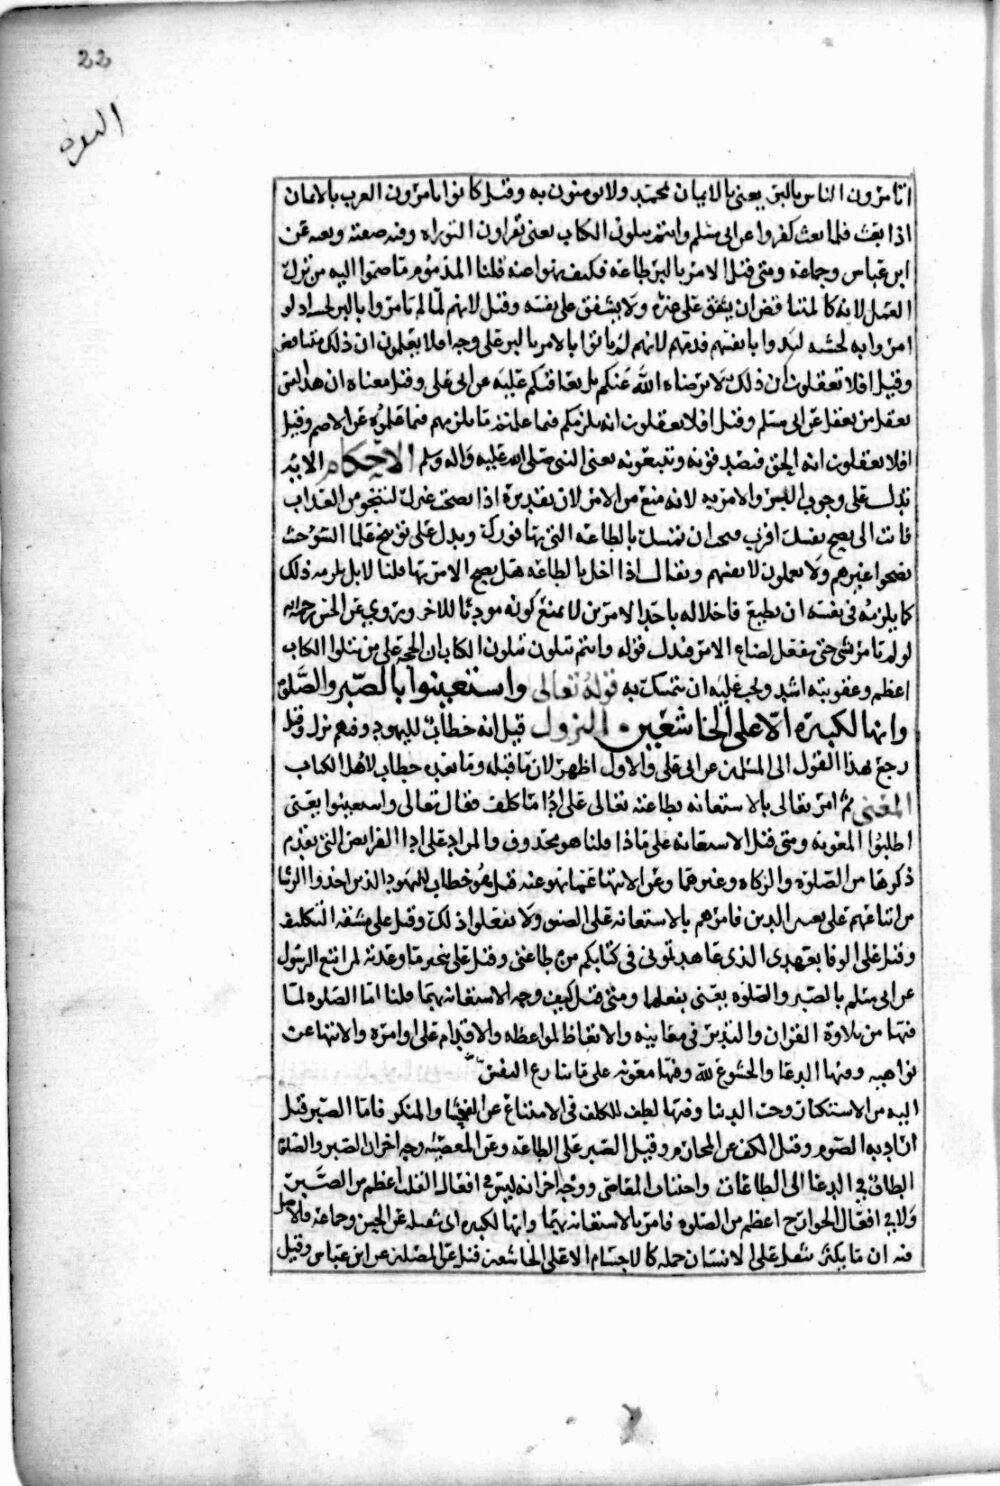 22
البقرة
اتامرون الناس بالبر يعني بالايمان بمحمد ولا يومنون به وقيل كانوا يامرون العرب بالايمان
اذا بعث فلما بعث كفروا عن ابي مسلم وانتم تتلون الكتاب يعني تقراون التوراه وفيه صفته ونعته عن
ابن عباس وجماعة ومتى قيل الامر بالبر طاعة فكيف نهوا عنه قلنا المذموم ما ضموا اليه من ترك
العمل لانه كالمتناقض ان يشفق على غيره ولا يشفق على نفسه وقيل لانهم لما لم يامروا بالبر لحسنه اذ لو
امروا به لحسنه لبدوا بانفسهم فذمهم لانهم لم ياتوا بالامر بالبر على وجه افلا يعلمون ان ذلك متناقض
وقيل افلا تعقلون ان ذلك لا يرضاه الله عنكم بل يعاقبكم عليه عن ابي علي وقيل معناه ان هذا ليس
بعقل من يعقل عن ابي مسلم وقيل افلا تعقلون انه يلزمكم فيما علمتم ما يلزمهم فيما علموه عن الاصم وقيل
افلا تعقلون انه الحق فتصدقونه وتتبعونه يعني النبي صلى الله عليه واله وسلم الاحكام الايه
تدل على وجوب البر والامر به لانه منع من الامر لان تقديره اذا نصحت غيرك لينجو من العذاب
فانت الى نصح نفسك اقرب فيجب ان تتمسك بالطاعة التي بها فوزك ويدل على توبيخ علما السوء حيث
نصحوا غيرهم ولا يعملون لانفسهم ويقال اذا اخل بالطاعة هل يصح الامر بها قلنا لا بل يلزمه ذلك
كما يلزمه في نفسه ان يطيع فاخلاله باحد الامرين لا يمنع كونه موديا للاخر ويروي عن الحسن رحمه الله
لو لم تامر بشي حتى تفعل لضاع الامر فيدل قوله وانتم تتلون الكتاب ان الحجة على من يتلوا الكتاب
اعظم وعقوبته اشد ويجب عليه ان يتمسك به قوله تعالى واستعينوا بالصبر والصلوة
وانها لكبيرة الا على الخاشعين النزول قيل انه خطاب لليهود وفيهم نزل وقيل
رجع هذا القول الى المسلمين عن ابي علي والاول اظهر لان ما قبله وما بعده خطاب لاهل الكتاب
المعنى ثم امر تعالى بالاستعانة بطاعته تعالى على اداما كلف فقال تعالى واستعينوا يعني
اطلبوا المعونة ومتى قيل الاستعانة على ماذا قلنا هو محذوف والمراد على ادا الفرايض التي تقدم
ذكرها من الصلوة والزكاه وغيرهما وعن الانتها عما نهوا عنه قيل هو خطاب لليهود الذين اخذوا الرشا
من اتباعهم على تغيير الدين فامرهم بالاستعانة على الصبر ولا تفعلوا ذلك وقيل على مشقة التكليف
وقيل على الوفا بعهدي الذي عاهدتموني في كتابكم من طاعتي وقيل على تنجيز ما وعدته لمن اتبع الرسول
عن ابي مسلم بالصبر والصلوة يعني بفعلهما ومتى قيل كيف وجه الاستعانة بهما قلنا اما الصلوة لما
فيها من تلاوة القران والتدبر في معانيه والاتعاظ لمواعظه والاقدام على اوامره والانتها عن
نواهيه وفيها الدعا والخشوع لله وفيها معونة على ما تنازع النفس
اليه من الاستكبار وحب الدنيا وفيها لطف للمكلف في الامتناع عن الفحشا والمنكر فاما الصبر قيل
اراد به الصوم وقيل الكف عن المحارم وقيل الصبر على الطاعة وعن المعصية وجه اخر ان الصبر والصلوة
الطاف في الدعا الى الطاعات واجتناب المعاصي ووجه اخر انه ليس في افعال القلب اعظم من الصبر
ولا في افعال الجوارح اعظم من الصلوة فامر بالاستعانة بهما وانها لكبيرة اي ثقيلة عن الحسن وجماعة والاصل
فيه ان ما يكبر يثقل على الانسان حمله كالاجسام الا على الخاشعين قيل عن المصلين عن ابن عباس وقيل